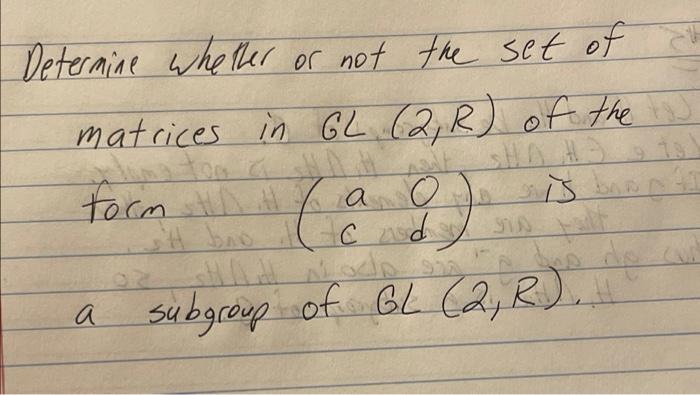 Determine whether or not the set of
matrices in GL (2, R) of the
form (a 0 is
c d)
a subgroup of GL (2, R).